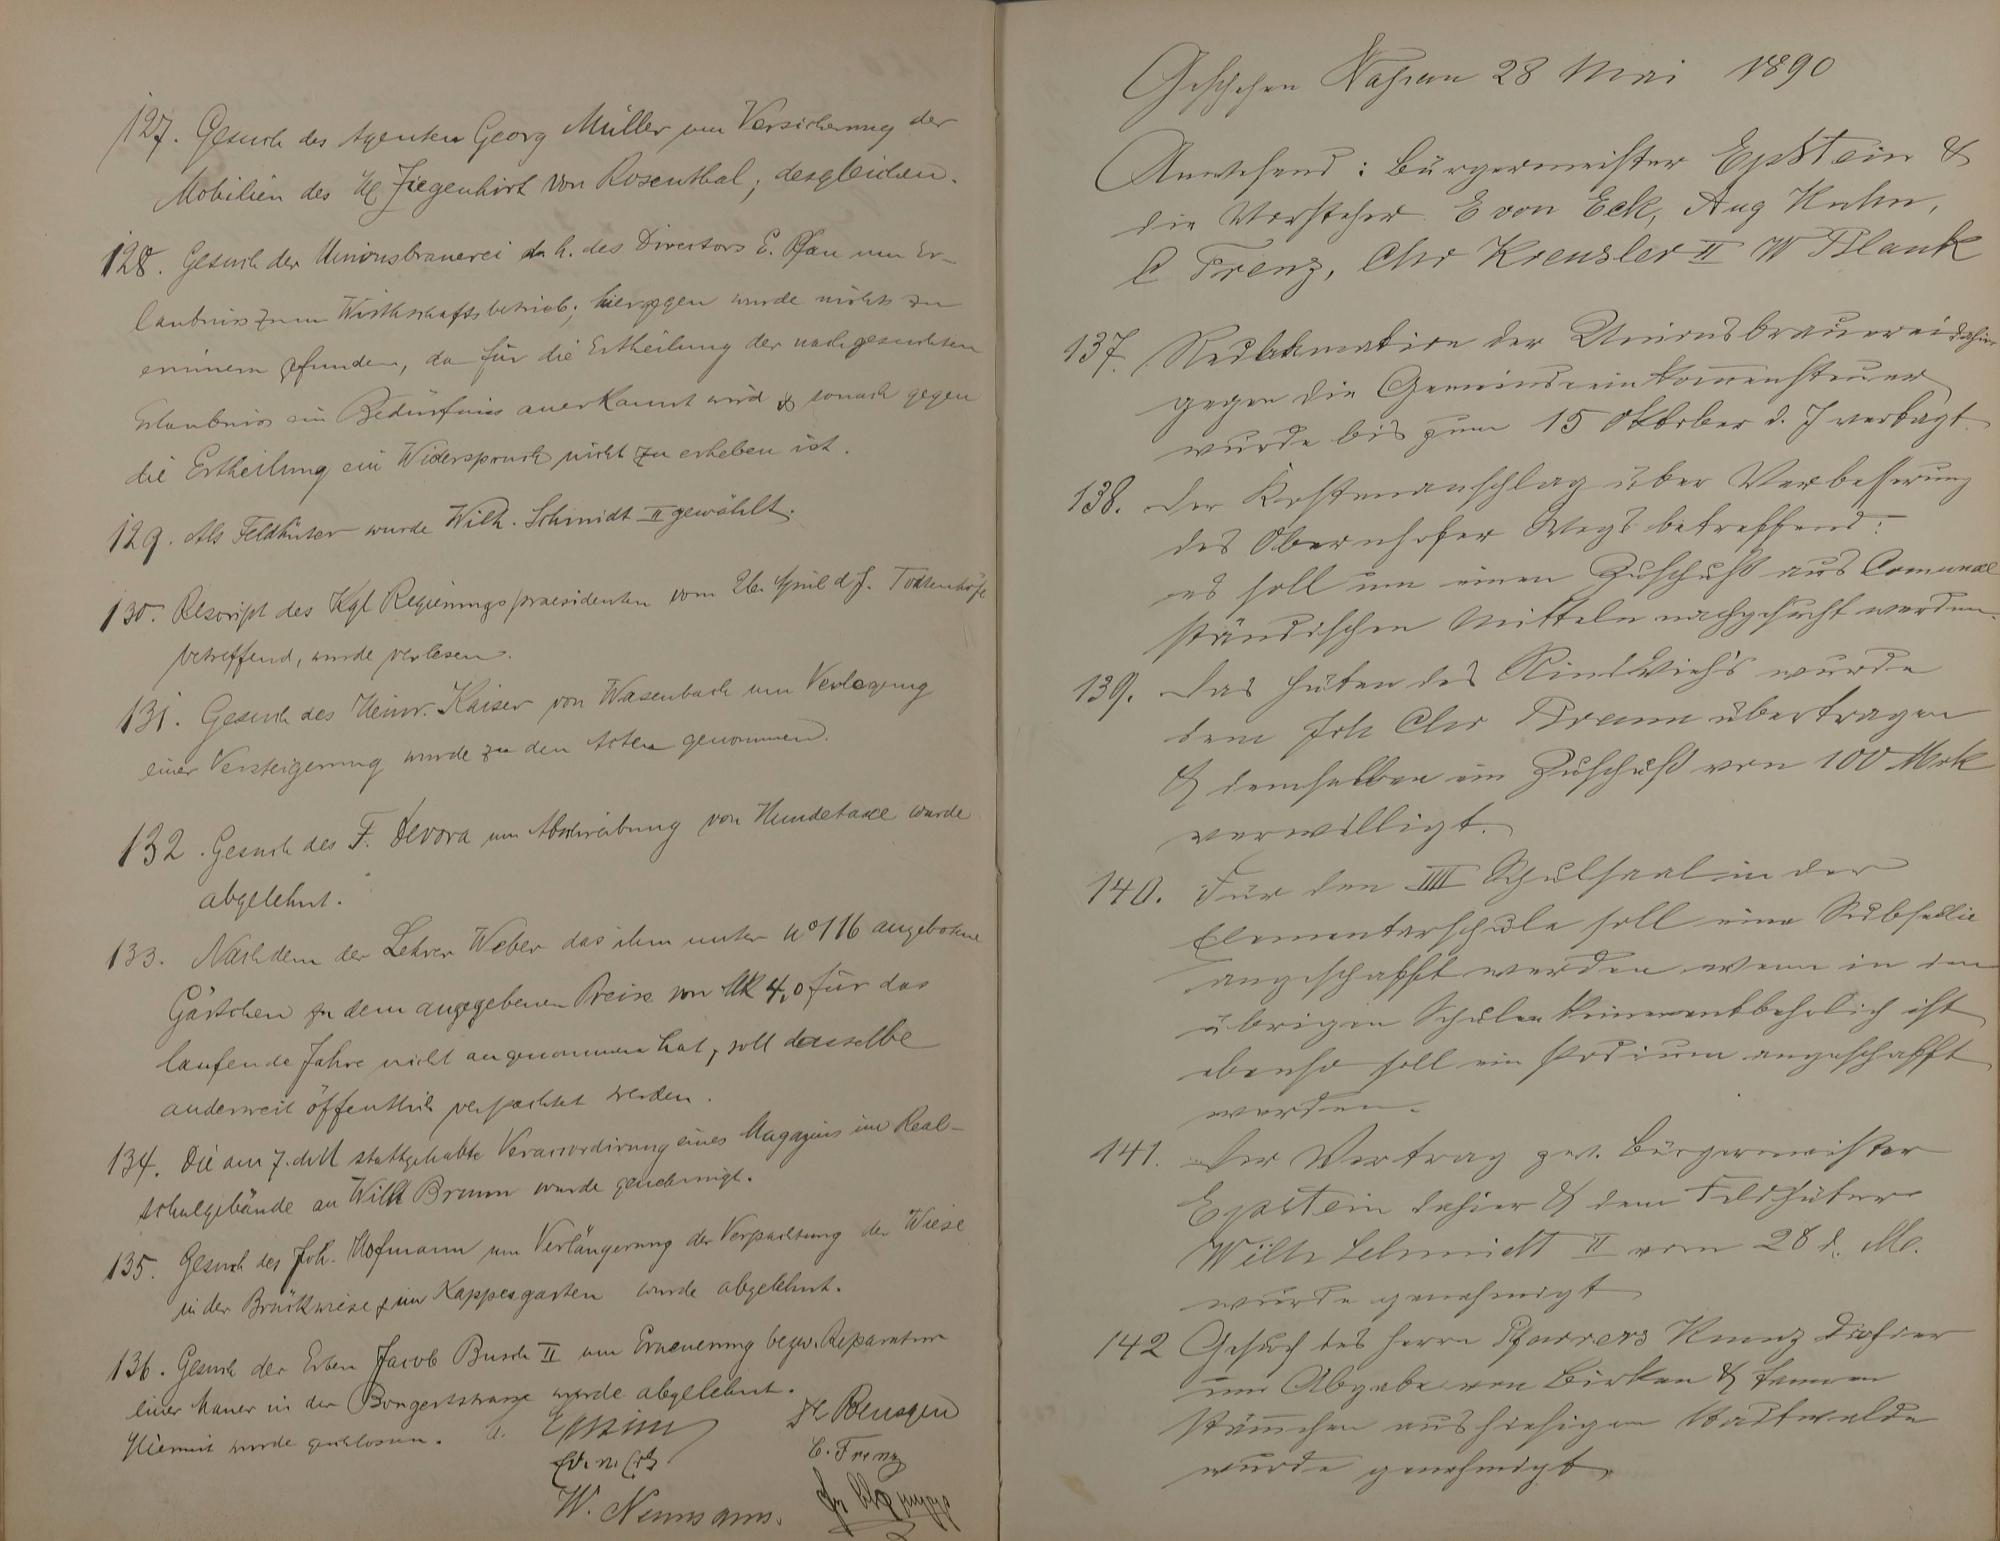 127. Gesuch des Agenten Georg Müller um Versicherung der
Mobilien des Ziegenhirt von Rosenthal; desgleichen.
128. Gesuch der Unionsbrauerei d. h. des Directors E. Pfau um Er-
laubniss zum Wirthschaftsbetrieb; hiergegen wurde nichts zu
erinnern gefunden, da für die Ertheilung der nachgesuchten
Erlaubniss ein Bedürfniss anerkannt wird & sonach gegen
die Ertheilung ein Widerspruch nicht zu erheben ist.
129. Als Feldhüter wurde Wilh. Schmidt II gewählt.
130. Rescript des Kgl Regierungspraesidenten vom 26. April d. J.
betreffend, wurde verlesen.
131. Gesuch des Heinr. Kaiser von Wasenbach um Verlegung
einer Versteigerung wurde zu den Acten genommen.
132. Gesuch des F. Devora um Abschreibung von Hundetaxe wurde
abgelehnt.
133. Nachdem der Lehrer Weber das ihm unter No 116 angebotene
Gärtchen zu dem angegebenen Preise von Mk 4,0 für das
laufende Jahre nicht angenommen hat, soll dasselbe
anderweit öffentlich verpachtet werden.
134. Die am 7. d. M stattgehabte Veraccordirung eines Magazins im Real-
schulgebäude an Wilh Braun wurde genehmigt.
135. Gesuch des Joh. Hofmann um Verlängerung der Verpachtung der Wiese
in der Brückwiese & im Kappesgarten wurde abgelehnt.
136. Gesuch der Erben Jacob Busch II um Erneuerung bezw. Reparatur
einer Mauer in der Bongertstrasse wurde abgelehnt.
Hiermit wurde geschlossen.
Epstein
C. Frenz
W. Neumann.
Geschehen Nassau 28 Mai 1890
Anwesend: Bürgermeister Epstein &
die Vorsteher E von Eck, Aug Kuhn,
C Frenz, Chr Kreusler II W Blank
137. Reclamation der Unionsbrauerei dahier
gegen die Gemeindeeinkommensteuer
wurde bis zum 15 Oktober d. J vertagt.
138. Der Kostenanschlag über Verbesserung
des Obernhofer Wegs betreffend:
es soll um einen Zuschuß aus Comunal
ständischen Mitteln nachgesucht werden.
139. Das Hüten des Rindviehs wurde
dem Joh Chr Braun übertragen
& demselben ein Zuschuß von 100 Mrk
verwilligt.
140. Für den IIII Schulsaal in der
Elementarschule soll eine Subsellie
angeschafft werden wenn in den
übrigen Schulen keine entbehrlich ist
ebenso soll ein Podium angeschafft
werden.
141. Der Vertrag zw. Bürgermeister
Epstein dahier & dem Feldhüter
Wilh Schmidt II vom 28 d. Mo.
wurde genehmigt
142 Gesuch des Herrn Pfarrers Kunz dahier
um Abgabe von Birken & Tannen
stämchen aus hiesigem Stadtwalde
wurde genehmigt.